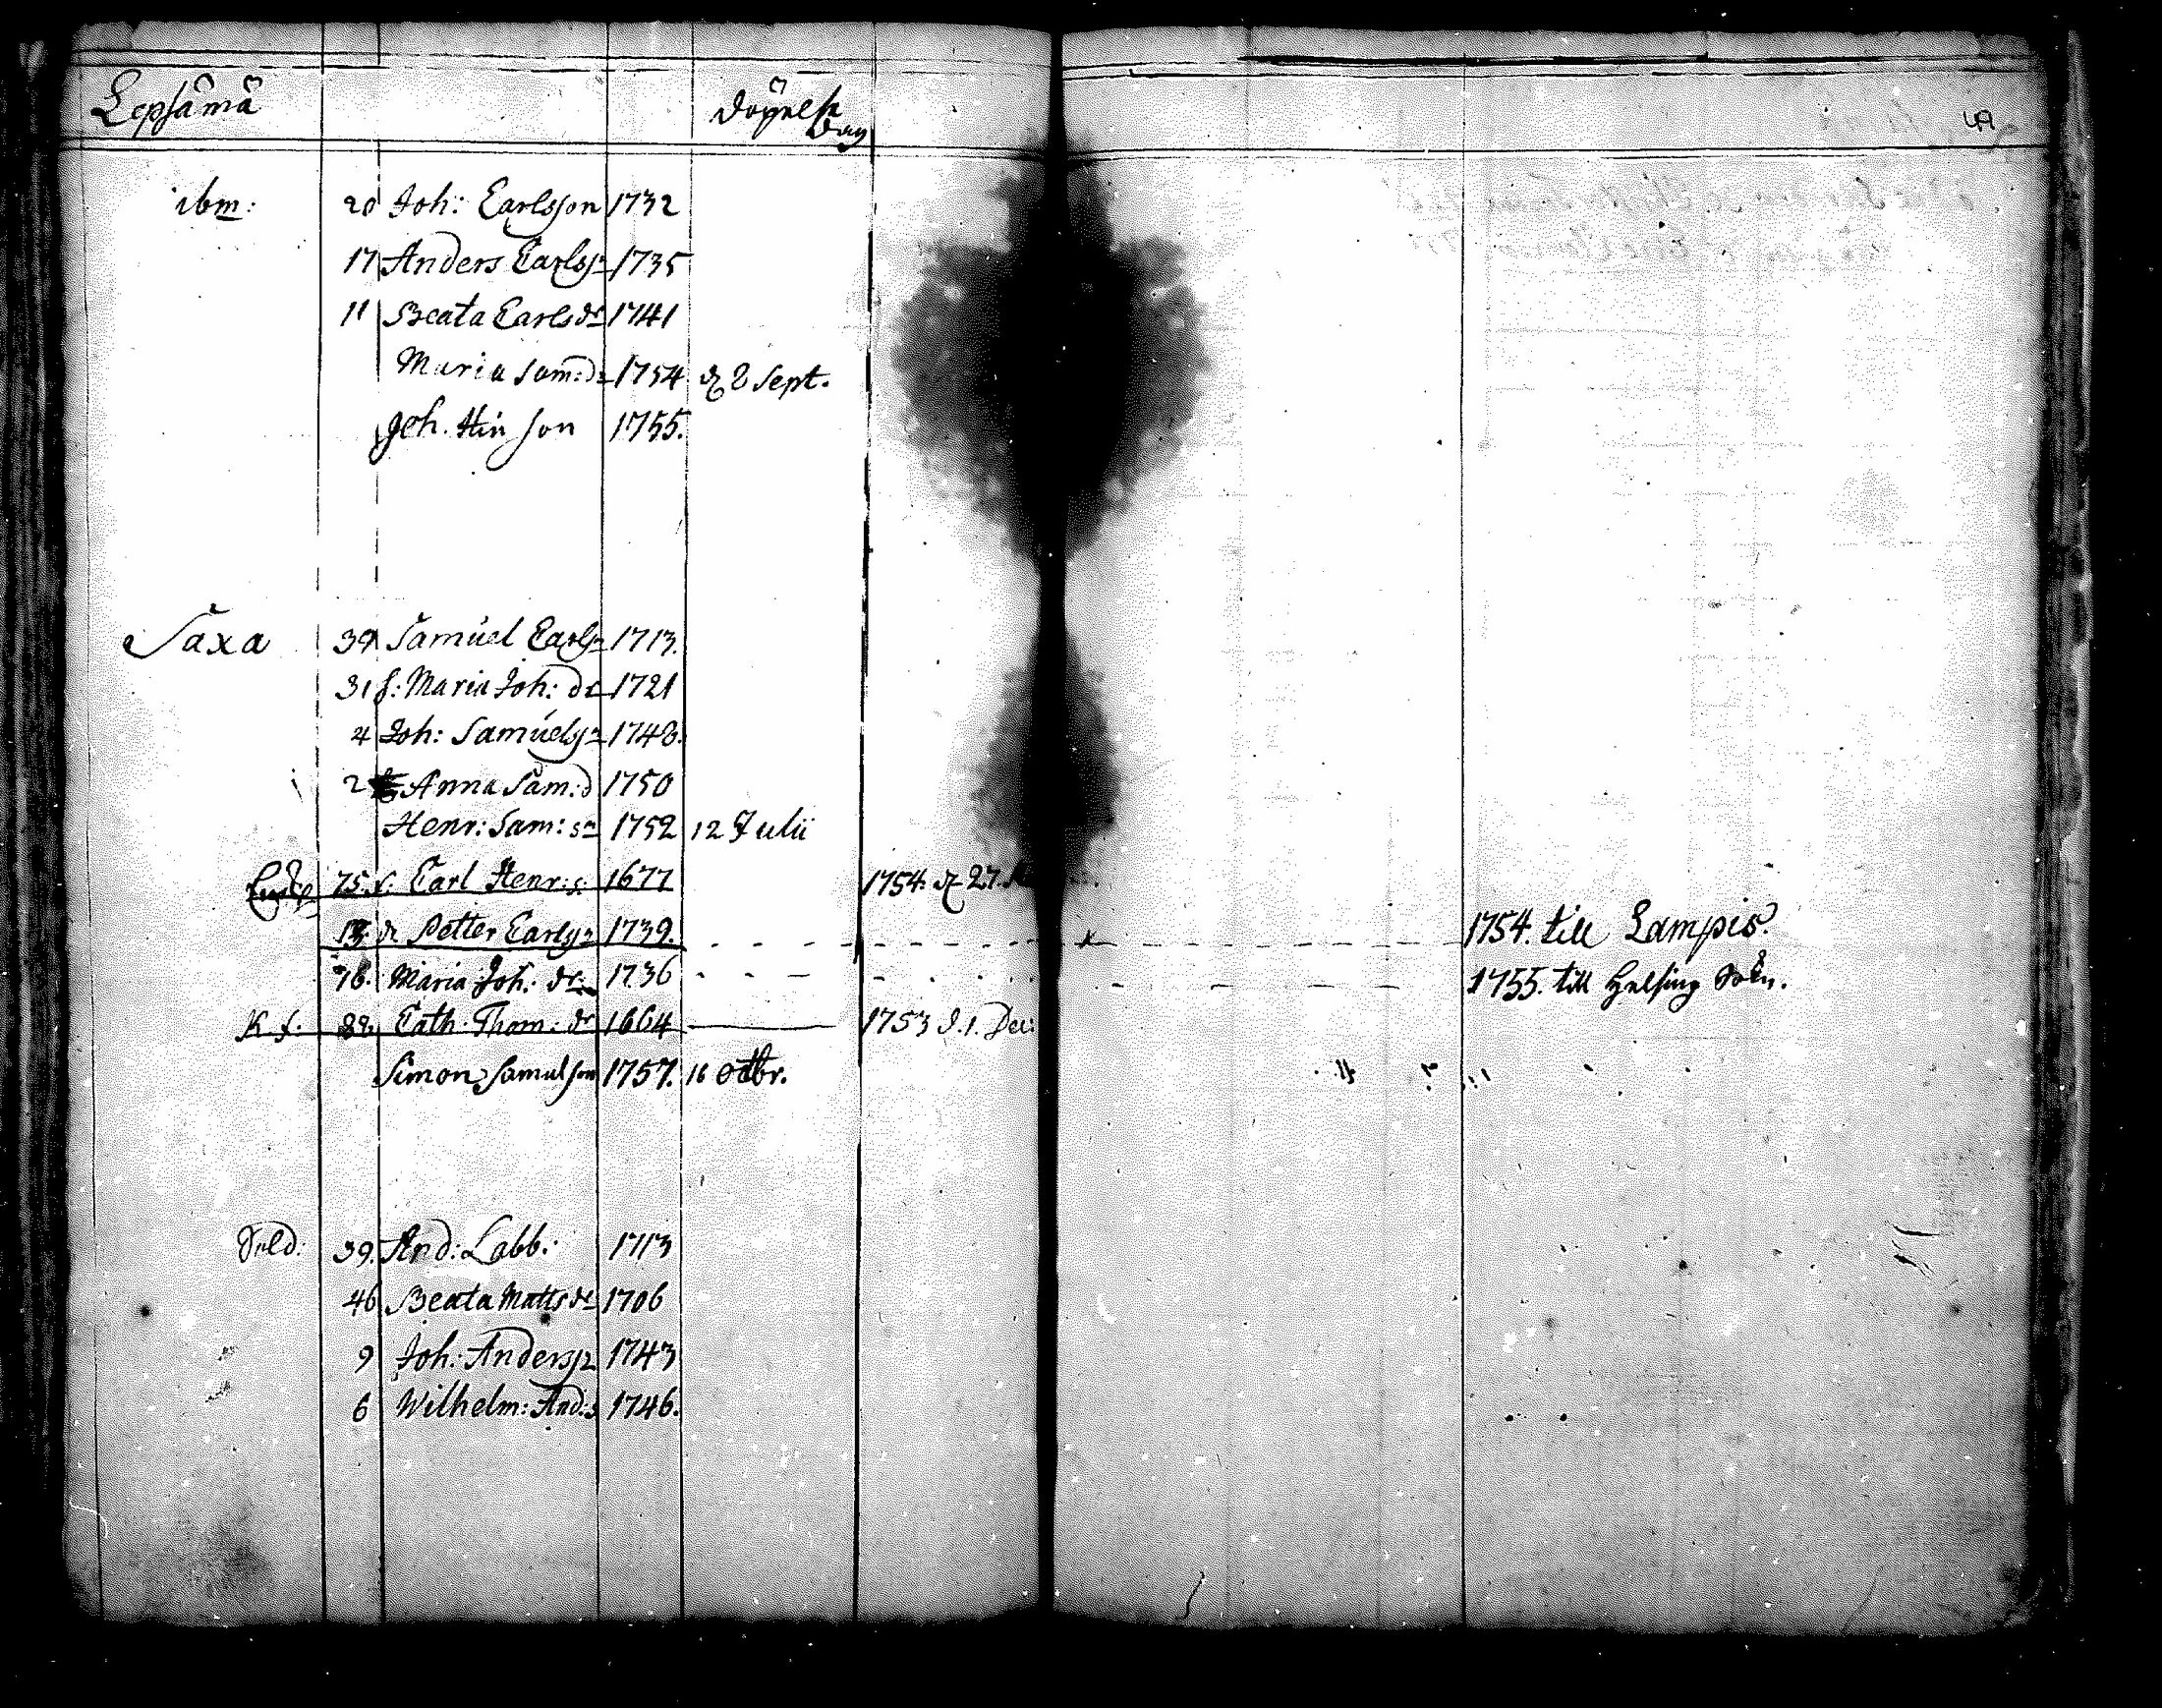 Lepsämä Döpelse Dag
49
ibm: 20 Joh: Carlsson 1732
17 Anders Carlss: 1735
11 Beata Carls dr 1741
Maria Sam: dr 1754 d 8 Sept.
Joh. Hin son 1755.
Saxa 39 Samuel Carls: 1713.
31 h: Maria Joh: dr 1721
4 Joh: Samuels: 1748.
2 Anna Sam: d 1750
Henr: Sam: sn 1752 12 Julii
75. Carl Henr: s. 1677 1754. d 27.
dr Petter Carls: 1739. 1754. till Lampis.
Maria Joh: dr 1736 1755. till Helsing Sokn.
Cath. Thom: dr 1664 1753 d. 1. Dec:
Simon Samulson 1757. 16 Octbr.
Sold: 39. And: Labb: 1713
46 Beata Matts dr 1706
9 Joh: Anderss: 1743
6 Wilhelm: And: s 1746.